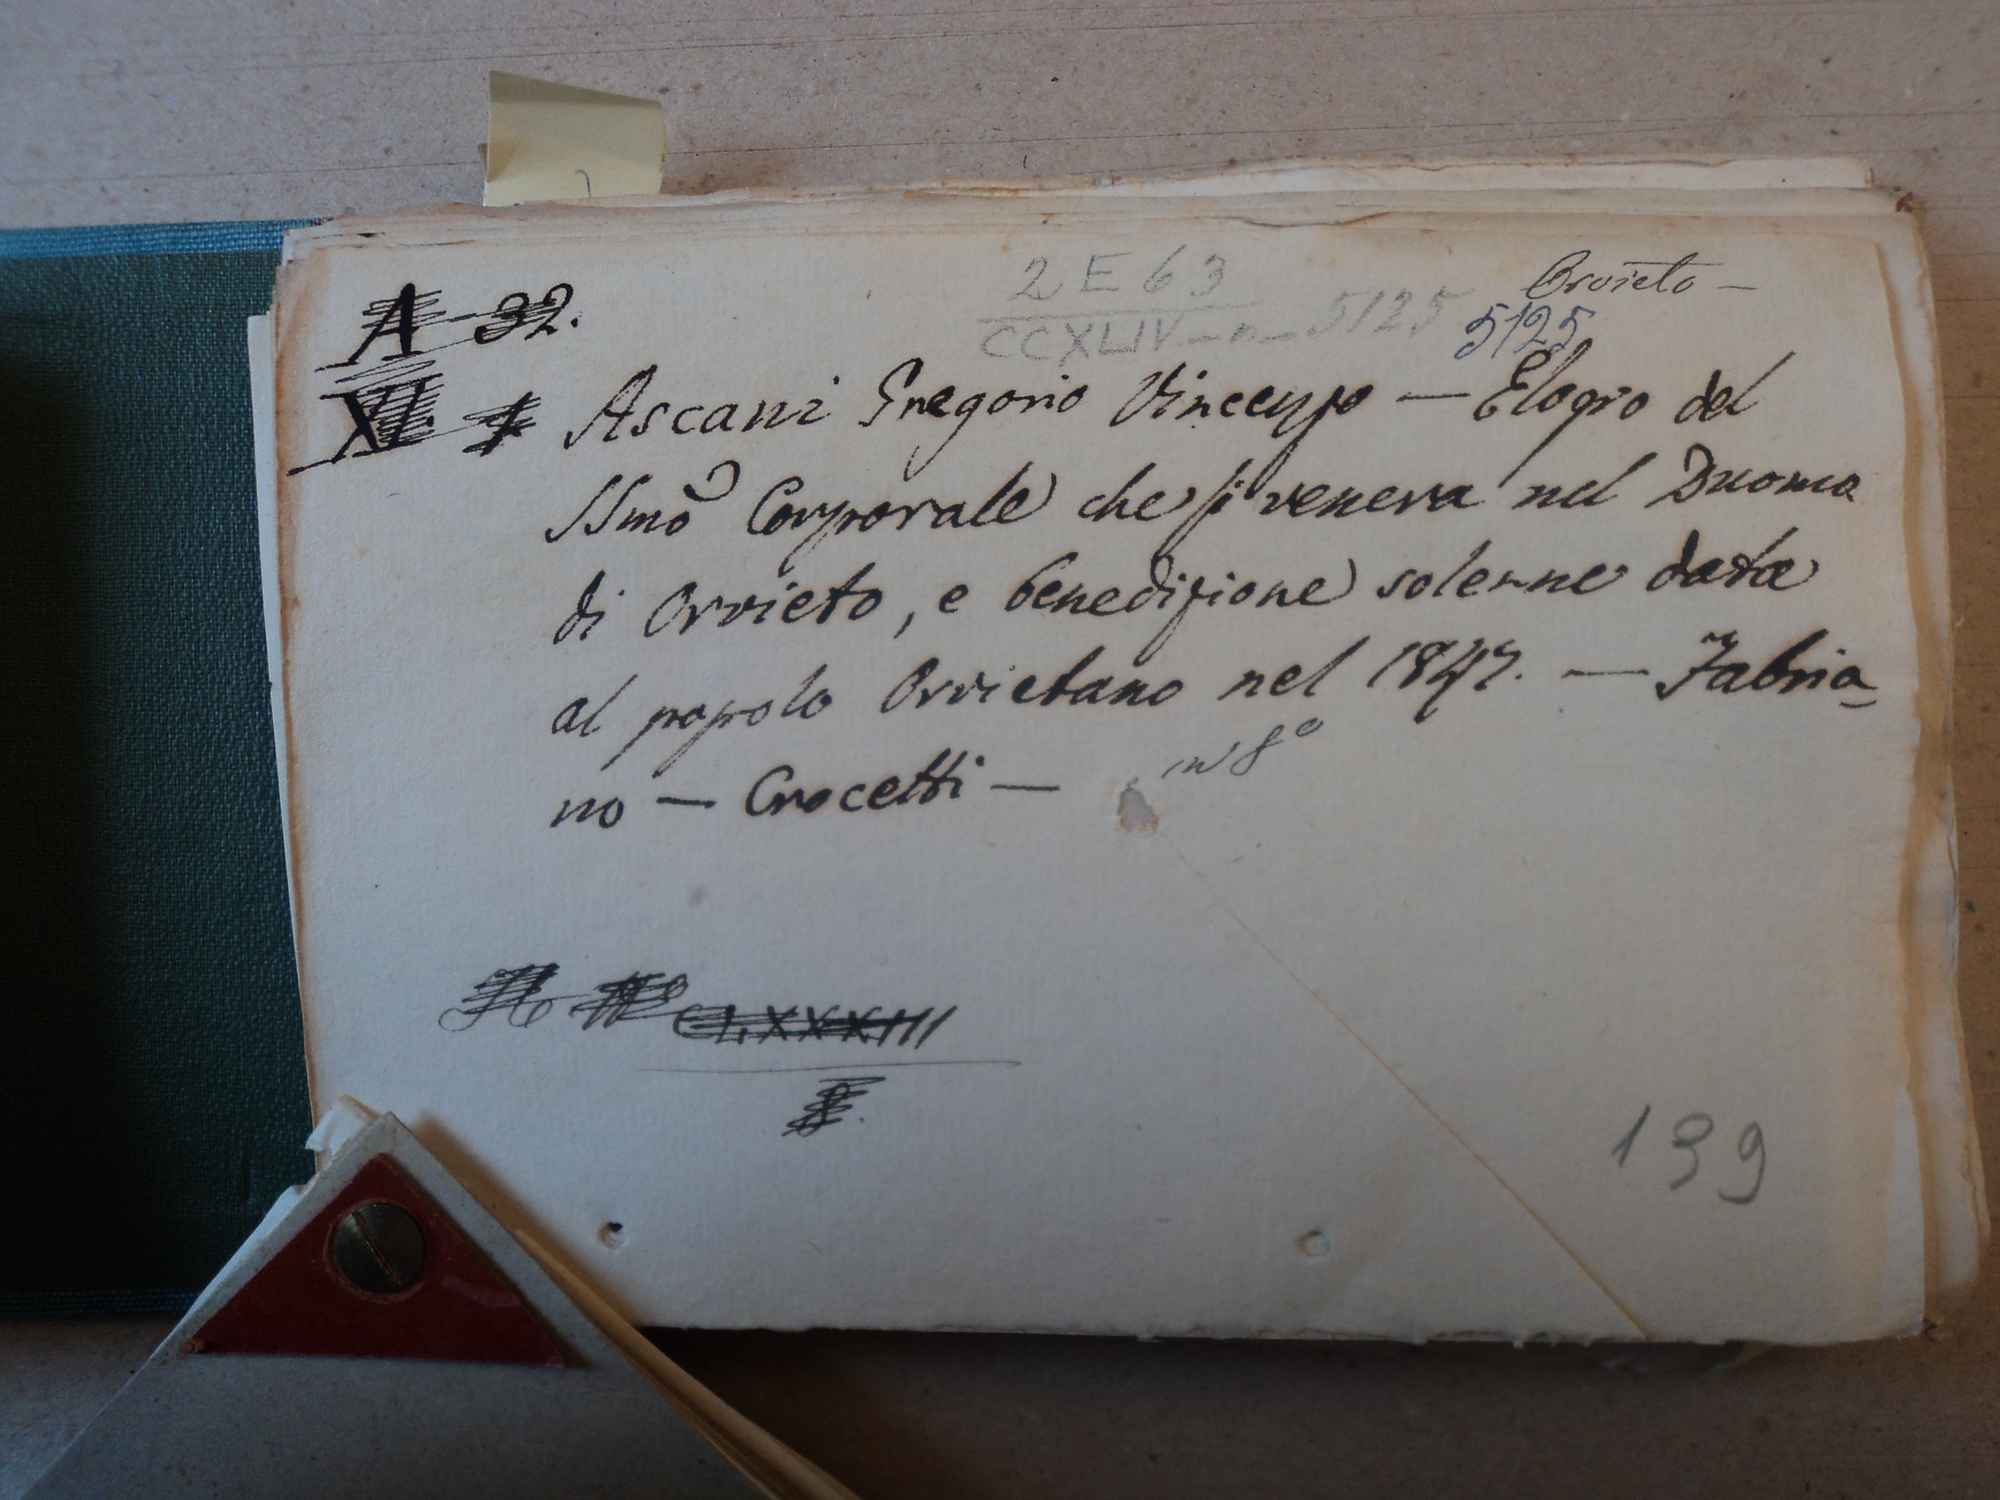 A 32.
2 E 63
Orvieto —
CCXLIV — n — 5125
5125
XI
Ascani Gregorio Vincenzo — Elogio del
SSmo Corporale che si venera nel Duomo
di Orvieto, e benedizione solenne data
al popolo Orvietano nel 1847. — Fabria-
no — Crocetti —
in 8°
CLXXXIII
8.
139